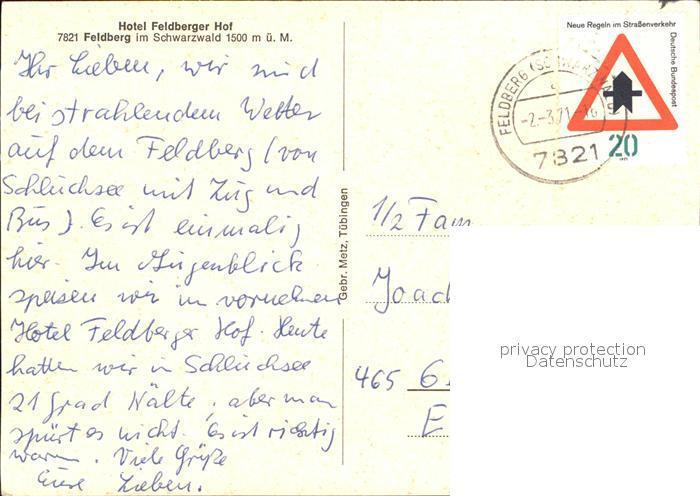 Hotel Feldberger Hof
7821 Feldberg im Schwarzwald 1500 m ü. M.
Ihr Lieben, wir sind
bei strahlendem Wetter
auf dem Feldberg (von
Schluchsee mit Zug und
Bus). Es ist einmalig
hier. Im Augenblick
speisen wir im vornehmen
Hotel Feldberger Hof. Heute
hatten wir in Schluchsee
21 Grad Kälte, aber man
spürt es nicht. Es ist richtig
warm. Viele Grüße
Eure Lieben.
Gebr. Metz, Tübingen
Neue Regeln im Straßenverkehr
Deutsche Bundespost
20
1971
FELDBERG (SCHWARZWALD)
-2.-3.71.-16
7821
1/2 Fam
Joach
465 6
E
privacy protection
Datenschutz